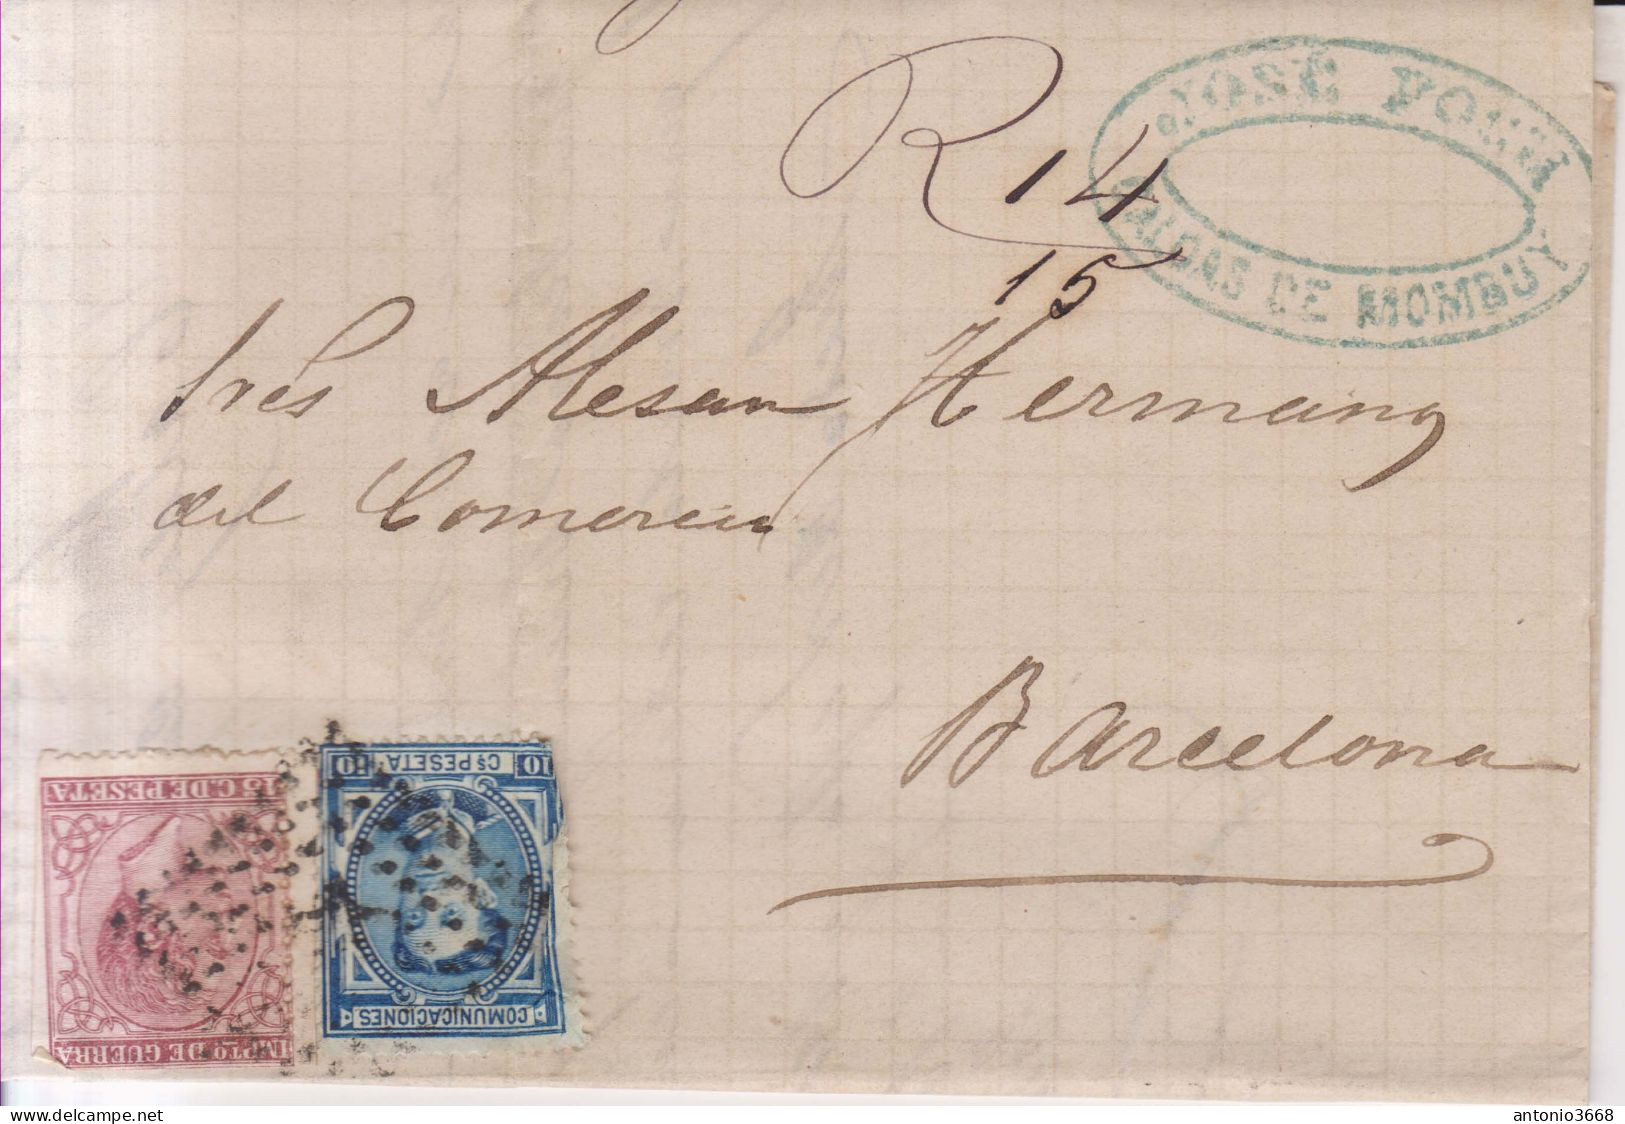 JOSÉ
CALDAS DE MOMBUY
R 14
15
Sres Alesan Hermanos
del Comercio
Barcelona
15 C. DE PESETA
IMPTO DE GUERRA
10 Cs PESETA 10
COMUNICACIONES
antonio3668